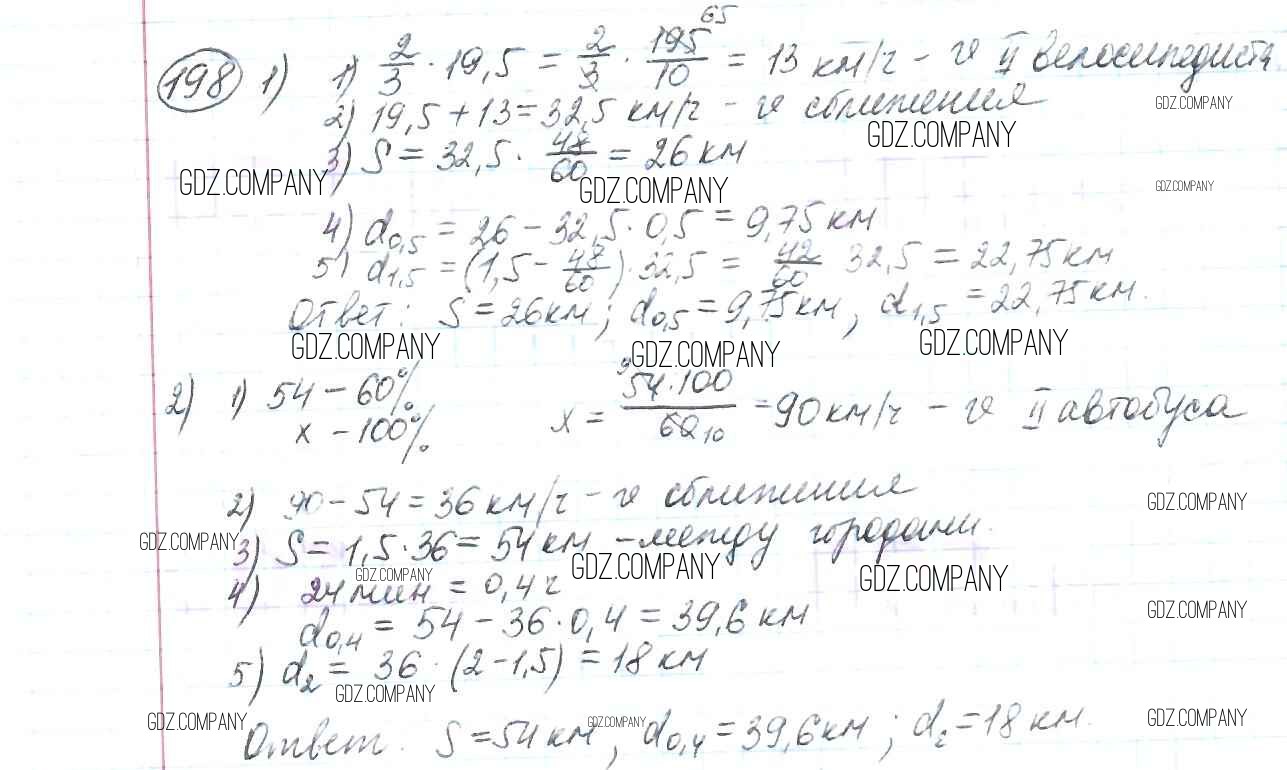 198 1) 1) 2/3 · 19,5 = 2/3 · 195/10 65 = 13 км/ч - v II велосипедиста
GDZ.COMPANY
2) 19,5 + 13 = 32,5 км/ч - v сближения
GDZ.COMPANY
3) S = 32,5 · 48/60 = 26 км
GDZ.COMPANY GDZ.COMPANY GDZ.COMPANY
4) d0,5 = 26 - 32,5 · 0,5 = 9,75 км
5) d1,5 = (1,5 - 48/60) · 32,5 = 42/60 32,5 = 22,75 км
Ответ: S = 26 км; d0,5 = 9,75 км, d1,5 = 22,75 км.
GDZ.COMPANY GDZ.COMPANY GDZ.COMPANY
2) 1) 54 - 60% x = 9 54·100/60 10 = 90 км/ч - v II автобуса
x - 100%
2) 90 - 54 = 36 км/ч - v сближения
GDZ.COMPANY
GDZ.COMPANY
3) S = 1,5 · 36 = 54 км - между городами.
GDZ.COMPANY GDZ.COMPANY GDZ.COMPANY
4) 24 мин = 0,4 ч
GDZ.COMPANY
d0,4 = 54 - 36 · 0,4 = 39,6 км
5) d2 = 36 · (2 - 1,5) = 18 км
GDZ.COMPANY
GDZ.COMPANY GDZ.COMPANY GDZ.COMPANY
Ответ. S = 54 км, d0,4 = 39,6 км; d2 = 18 км.